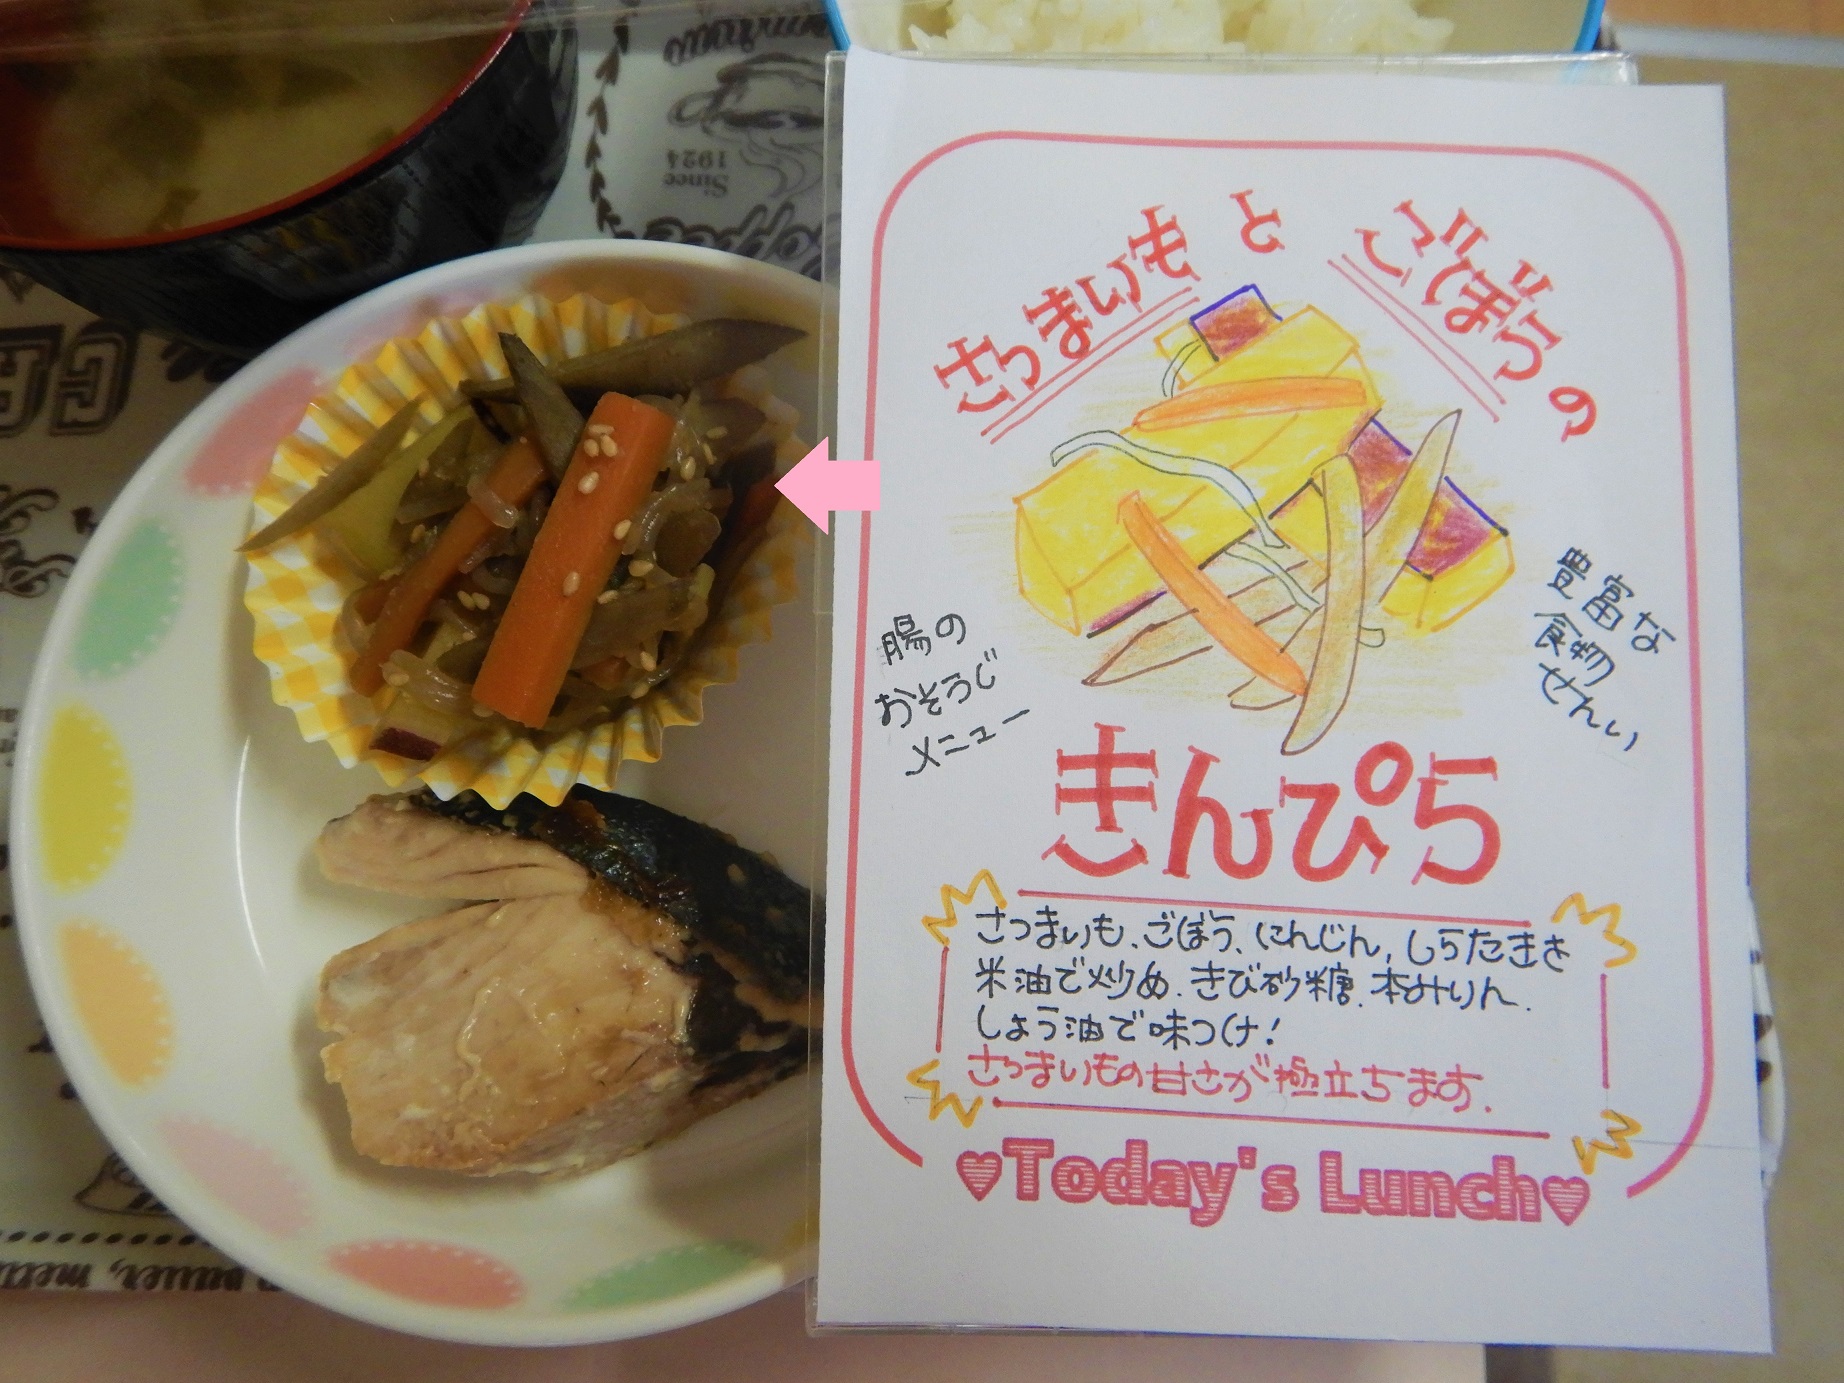 さつまいもとごぼうの
腸の
おそうじ
メニュー
豊富な
食物
せんい
きんぴら
さつまいも、ごぼう、にんじん、しらたきを
米油で炒め、きび砂糖、本みりん、
しょう油で味つけ!
さつまいもの甘さが極立ちます。
♥Today's Lunch♥
Since
1924